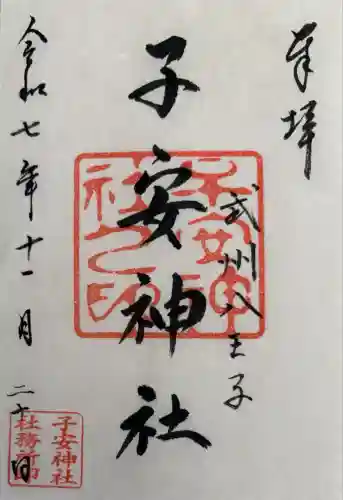 奉拝
武州八王子
子安神社
令和七年十一月二十日
子安神社
社務所印